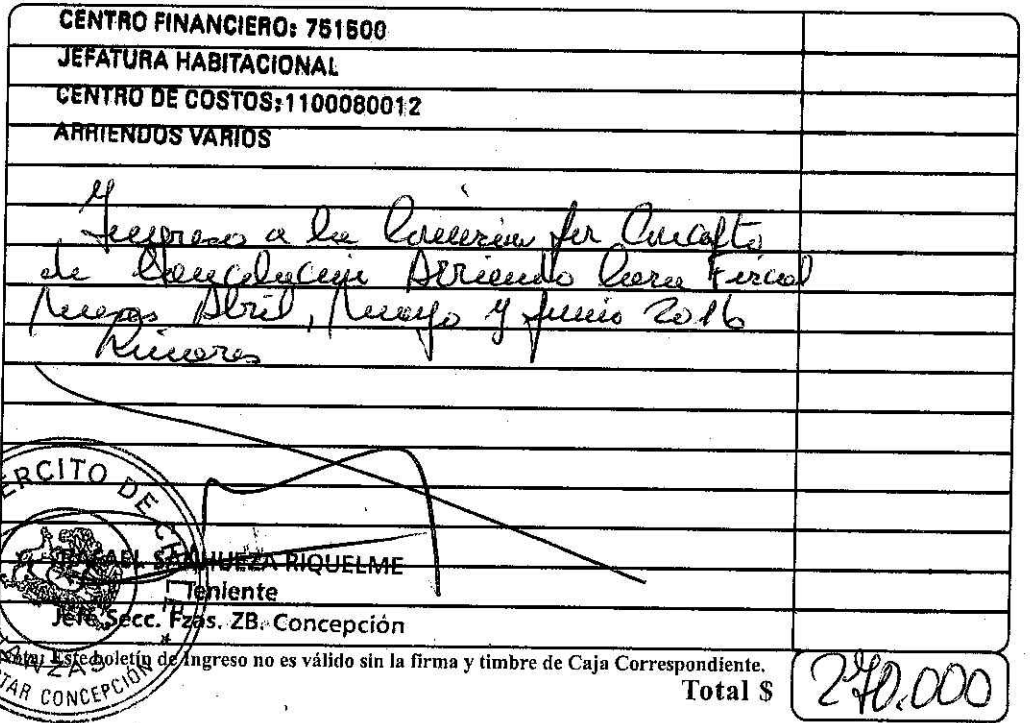 CENTRO FINANCIERO: 751500
JEFATURA HABITACIONAL
CENTRO DE COSTOS:1100080012
ARRIENDOS VARIOS
Ingreso a la por Concepto
de Cancelación Arriendo Casa Fiscal
Meses Abril, Mayo y Junio 2016
ERCITO DE CHILE
RAFAEL SANHUEZA RIQUELME
Teniente
Jefe Secc. Fzas. ZB. Concepción
Nota: Este boletín de Ingreso no es válido sin la firma y timbre de Caja Correspondiente.
TAR CONCEPCIÓN
Total $ 270.000